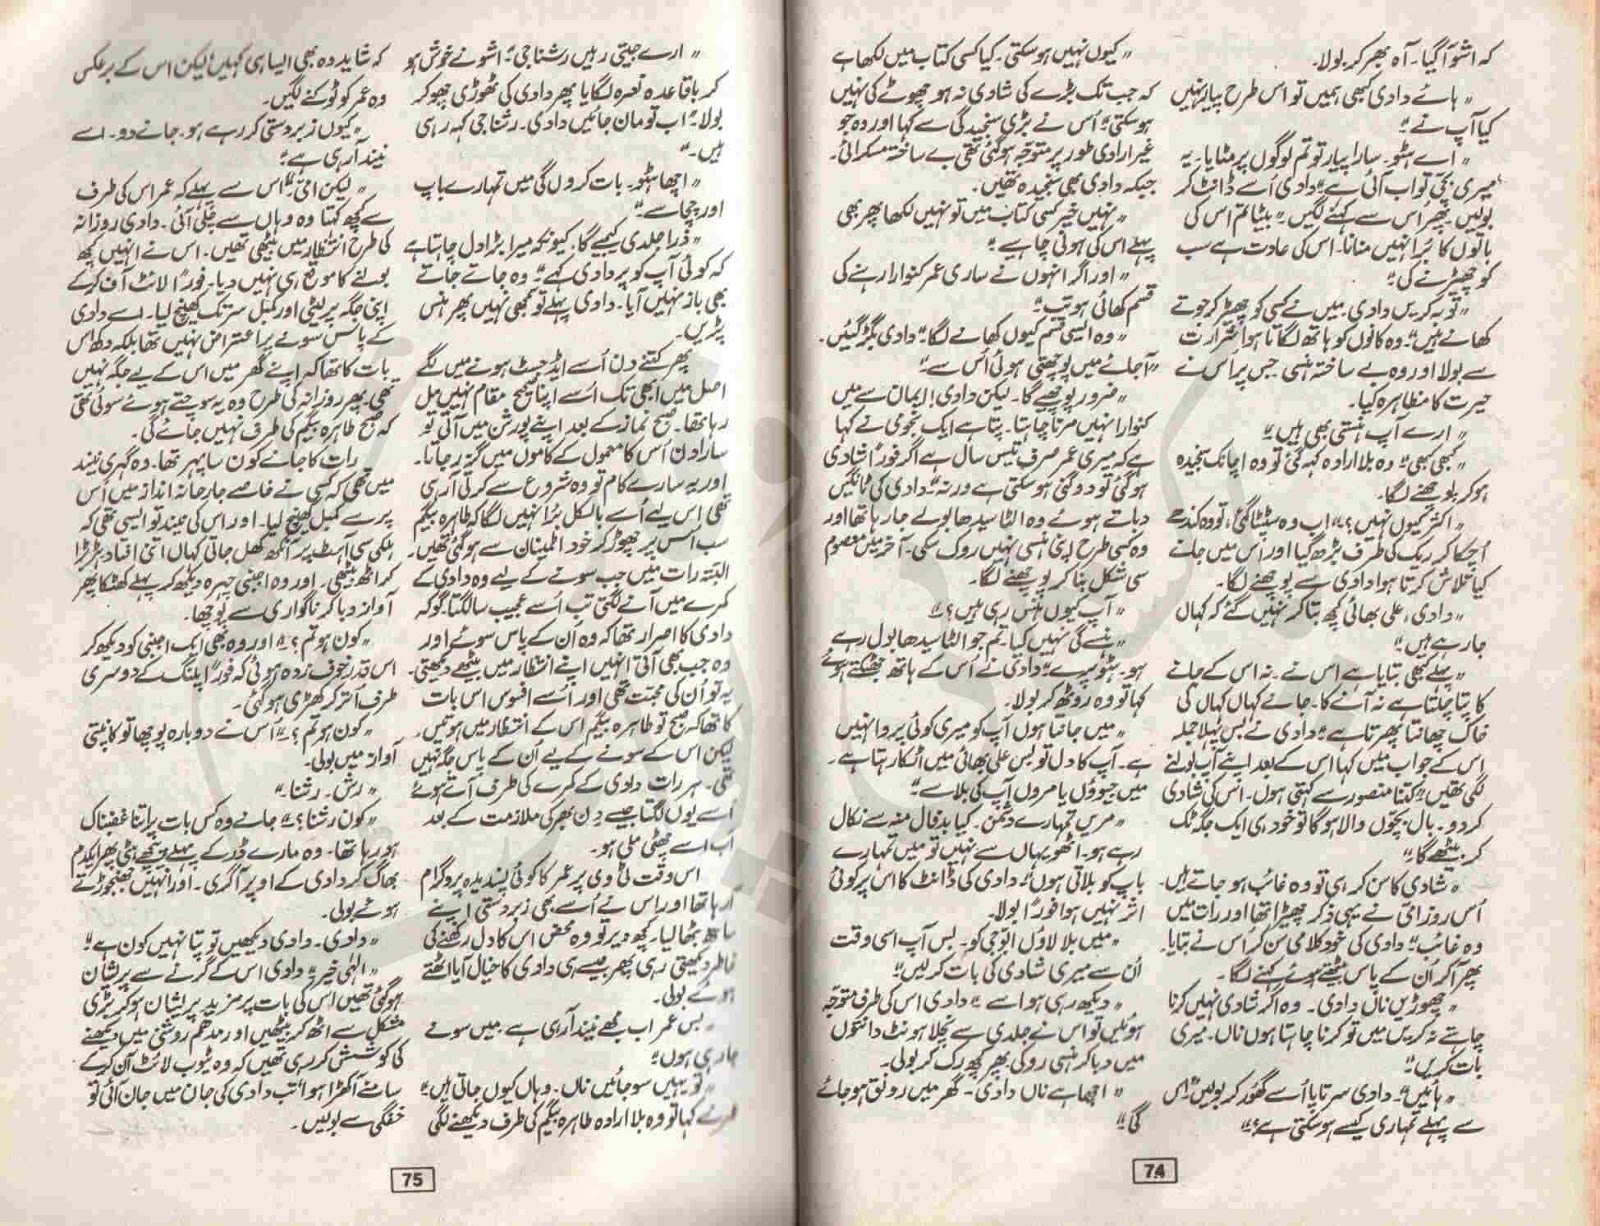 کہ اشو آ گیا۔ آہ بھر کر بولا۔
"ہائے دادی کبھی ہمیں تو اس طرح پیار نہیں
کیا آپ نے"
"اے ہٹو۔ سارا پیار تو تم لوگوں پر مٹایا۔ یہ
میری بچی تو اب آئی ہے" دادی اُسے ڈانٹ کر
بولیں۔ پھر اس سے کہنے لگیں۔ "بیٹا تم اس کی
باتوں کا بُرا نہیں ماننا۔ اس کی عادت ہے سب
کو چھیڑنے کی"
"توبہ کریں دادی۔ میں نے کسی کو چھیڑ کر جوتے
کھانے ہیں" وہ کانوں کو ہاتھ لگاتا ہوا شرارت
سے بولا اور وہ بے ساختہ ہنسی جس پر اس نے
حیرت کا مظاہرہ کیا۔
"ارے آپ ہنستی بھی ہیں"
"کبھی کبھی" وہ بلا ارادہ کہہ گئی تو وہ اچانک سنجیدہ
ہو کر پوچھنے لگا۔
"اکثر کیوں نہیں؟" اب وہ سٹپٹا گئی، تو وہ کندھے
اُچکا کر ریک کی طرف بڑھ گیا اور اس میں جانے
کیا تلاش کرتا ہوا دادی سے پوچھنے لگا۔
"دادی، علی بھائی کچھ بتا کر نہیں گئے کہ کہاں
جا رہے ہیں"
"پہلے کبھی بتایا ہے اس نے۔ نہ اس کے جانے
کا پتا چلتا ہے نہ آنے کا۔ جانے کہاں کہاں کی
خاک چھانتا پھرتا ہے" دادی نے بس پہلا جملہ
اس کے جواب میں کہا اس کے بعد اپنے آپ بولنے
لگی تھیں "کتنا منصور سے کہتی ہوں۔ اس کی شادی
کر دو۔ بال بچوں والا ہو گا تو خود ہی ایک جگہ ٹک
کر بیٹھے گا"
"شادی کا سن کر ہی تو وہ غائب ہو جاتے ہیں۔
اُس روز امی نے یہی ذکر چھیڑا تھا اور رات میں
وہ غائب" دادی کی خود کلامی سن کر اس نے بتایا۔
پھر آ کر اُن کے پاس بیٹھتے ہوئے کہنے لگا۔
"چھوڑیں ناں دادی۔ وہ اگر شادی نہیں کرنا
چاہتے نہ کریں میں تو کرنا چاہتا ہوں ناں۔ میری
بات کریں"
"ہائیں" دادی سر تا پا اُسے گھور کر بولیں "اس
سے پہلے تمہاری کیسے ہو سکتی ہے؟"
"کیوں نہیں ہو سکتی۔ کیا کسی کتاب میں لکھا ہے
کہ جب تک بڑے کی شادی نہ ہو چھوٹے کی نہیں
ہو سکتی" اُس نے بڑی سنجیدگی سے کہا اور وہ جو
غیر ارادی طور پر متوجہ ہو گئی تھی بے ساختہ مسکرائی۔
جبکہ دادی بھی سنجیدہ تھیں۔
"نہیں خیر کسی کتاب میں تو نہیں لکھا پھر بھی
پہلے اس کی ہونی چاہیے"
"اور اگر انہوں نے ساری عمر کنوارا رہنے کی
قسم کھائی ہو تب"
"وہ ایسی قسم کیوں کھانے لگا" دادی بگڑ گئیں۔
"آ جائے میں پوچھتی ہوں اُس سے"
"ضرور پوچھیے گا۔ لیکن دادی! ایمان سے میں
کنوارا نہیں مرنا چاہتا۔ پتا ہے ایک نجومی نے کہا
ہے کہ میری عمر صرف تیس سال ہے اگر فوراً شادی
ہو گئی تو دو گنی ہو سکتی ہے ورنہ" دادی کی ٹانگیں
دباتے ہوئے وہ الٹا سیدھا بولے جا رہا تھا اور
وہ کسی طرح اپنی ہنسی نہیں روک سکی۔ آخر میں معصوم
سی شکل بنا کر پوچھنے لگا۔
"آپ کیوں ہنس رہی ہیں؟"
"ہنسے گی نہیں کیا۔ تم جو الٹا سیدھا بول رہے
ہو۔ ہٹو پرے" دادی نے اُس کے ہاتھ جھٹکتے ہوئے
کہا تو وہ روٹھ کر بولا۔
"میں جانتا ہوں آپ کو میری کوئی پروا نہیں
ہے۔ آپ کا دل تو بس علی بھائی میں اٹکا رہتا ہے۔
میں جیوؤں یا مروں آپ کی بلا سے"
"مریں تمہارے دشمن۔ کیا بد فال منہ سے نکال
رہے ہو۔ اٹھو یہاں سے نہیں تو میں تمہارے
باپ کو بلاتی ہوں" دادی کی ڈانٹ کا اس پر کوئی
اثر نہیں ہوا فوراً بولا۔
"میں بلا لاؤں ابو جی کو۔ بس آپ اسی وقت
اُن سے میری شادی کی بات کر لیں"
"دیکھ رہی ہو اسے" دادی اس کی طرف متوجہ
ہوئیں تو اس نے جلدی سے نچلا ہونٹ دانتوں
میں دبا کر ہنسی روکی۔ پھر کچھ رک کر بولی۔
"اچھا ہے ناں دادی۔ گھر میں رونق ہو جائے
گی"
74
"ارے جیتی رہیں رشنا جی" اشو نے خوش ہو
کر باقاعدہ نعرہ لگایا پھر دادی کی ٹھوڑی چھو کر
بولا "اب تو مان جائیں دادی۔ رشنا جی کہہ رہی
ہیں۔"
"اچھا ہٹو۔ بات کروں گی میں تمہارے باپ
اور چچا سے"
"ذرا جلدی کیجیے گا، کیونکہ میرا بڑا دل چاہتا ہے
کہ کوئی آپ کو پر دادی کہے" وہ جاتے جاتے
بھی باز نہیں آیا۔ دادی پہلے تو سمجھی نہیں پھر ہنس
پڑیں۔
پھر کتنے دن اُسے ایڈجسٹ ہونے میں لگے
اصل میں ابھی تک اُسے اپنا صحیح مقام نہیں مل
رہا تھا۔ صبح نماز کے بعد اپنے پورشن میں آتی تو
سارا دن اُس کا معمول کے کاموں میں گزر جاتا۔
اور یہ سارے کام تو وہ شروع سے کرتی آ رہی
تھی اس لیے اُسے بالکل بُرا نہیں لگا کہ طاہرہ بیگم
سب اس پر چھوڑ کر خود اطمینان سے ہو گئی تھیں۔
البتہ رات میں جب سونے کے لیے وہ دادی کے
کمرے میں آنے لگتی تب اُسے عجیب سا لگتا۔ گو کہ
دادی کا اصرار تھا کہ وہ ان کے پاس سوئے اور
وہ جب بھی آتی انہیں اپنے انتظار میں بیٹھے دیکھتی۔
یہ تو اُن کی محبت تھی اور اُسے افسوس اس بات
کا تھا کہ صبح تو طاہرہ بیگم اس کے انتظار میں ہوتیں۔
لیکن اس کے سونے کے لیے اُن کے پاس جگہ نہیں
تھی۔ ہر رات دادی کے کمرے کی طرف آتے ہوئے
اُسے یوں لگتا جیسے دن بھر کی ملازمت کے بعد
اب اسے چھٹی ملی ہو۔
اس وقت ٹی وی پر عمر کا کوئی پسندیدہ پروگرام
آ رہا تھا اور اس نے اُسے بھی زبردستی اپنے
ساتھ بٹھا لیا۔ کچھ دیر تو وہ محض اس کا دل رکھنے کی
خاطر دیکھتی رہی پھر جیسے ہی دادی کا خیال آیا اٹھتے
ہوئے بولی۔
"بس عمر اب مجھے نیند آ رہی ہے۔ میں سونے
جا رہی ہوں"
"تو یہیں سو جائیں ناں۔ وہاں کیوں جاتی ہیں"
عمر نے کہا تو وہ بلا ارادہ طاہرہ بیگم کی طرف دیکھنے لگی
کہ شاید وہ بھی ایسا ہی کہیں لیکن اس کے برعکس
وہ عمر کو ٹوکنے لگیں۔
"کیوں زبردستی کر رہے ہو۔ جانے دو۔ اسے
نیند آ رہی ہے"
"لیکن امی" اس سے پہلے کہ عمر اس کی طرف
سے کچھ کہتا وہ وہاں سے چلی آئی۔ دادی روزانہ
کی طرح انتظار میں بیٹھی تھیں۔ اس نے انہیں کچھ
بولنے کا موقع ہی نہیں دیا۔ فوراً لائٹ آف کر کے
اپنی جگہ پر لیٹی اور کمبل سر تک کھینچ لیا۔ اسے دادی
کے پاس سونے پر اعتراض نہیں تھا بلکہ دکھ اس
بات کا تھا کہ اپنے گھر میں اس کے لیے جگہ نہیں
تھی۔ پھر روزانہ کی طرح وہ یہ سوچتے ہوئے سوئی تھی
کہ صبح طاہرہ بیگم کی طرف نہیں جائے گی۔
رات کا جانے کون سا پہر تھا۔ وہ گہری نیند
میں تھی کہ کسی نے خاصے جارحانہ انداز میں اُس
پر سے کمبل کھینچ لیا۔ اور اس کی نیند تو ایسی تھی کہ
ہلکی سی آہٹ پر آنکھ کھل جاتی کہاں اتنی افتاد ہڑبڑا
کر اٹھ بیٹھی۔ اور وہ اجنبی چہرہ دیکھ کر پہلے ٹھٹکا پھر
آواز دبا کر ناگواری سے پوچھا۔
"کون ہو تم؟" اور وہ بھی ایک اجنبی کو دیکھ کر
اس قدر خوف زدہ ہوئی کہ فوراً پلنگ کے دوسری
طرف اتر کر کھڑی ہو گئی۔
"کون ہو تم؟" اُس نے دوبارہ پوچھا تو کانپتی
آواز میں بولی۔
"رش۔ رشنا۔"
"کون رشنا؟" جانے وہ کس بات پر اتنا غضبناک
ہو رہا تھا۔ وہ مارے ڈر کے پہلے پیچھے ہٹی پھر ایکدم
بھاگ کر دادی کے اوپر آ گری۔ اور انہیں جھنجوڑتے
ہوئے بولی۔
"دادی۔ دادی دیکھیں تو پتا نہیں کون ہے"
"الٰہی خیر" دادی اس کے گرنے سے پریشان
ہو گئی تھیں اس کی بات پر مزید پریشان ہو کر بڑی
مشکل سے اٹھ کر بیٹھیں اور مدھم روشنی میں دیکھنے
کی کوشش کر رہی تھیں کہ وہ ٹیوب لائٹ آن کر کے
سامنے آ کھڑا ہوا تب دادی کی جان میں جان آئی تو
خفگی سے بولیں۔
75